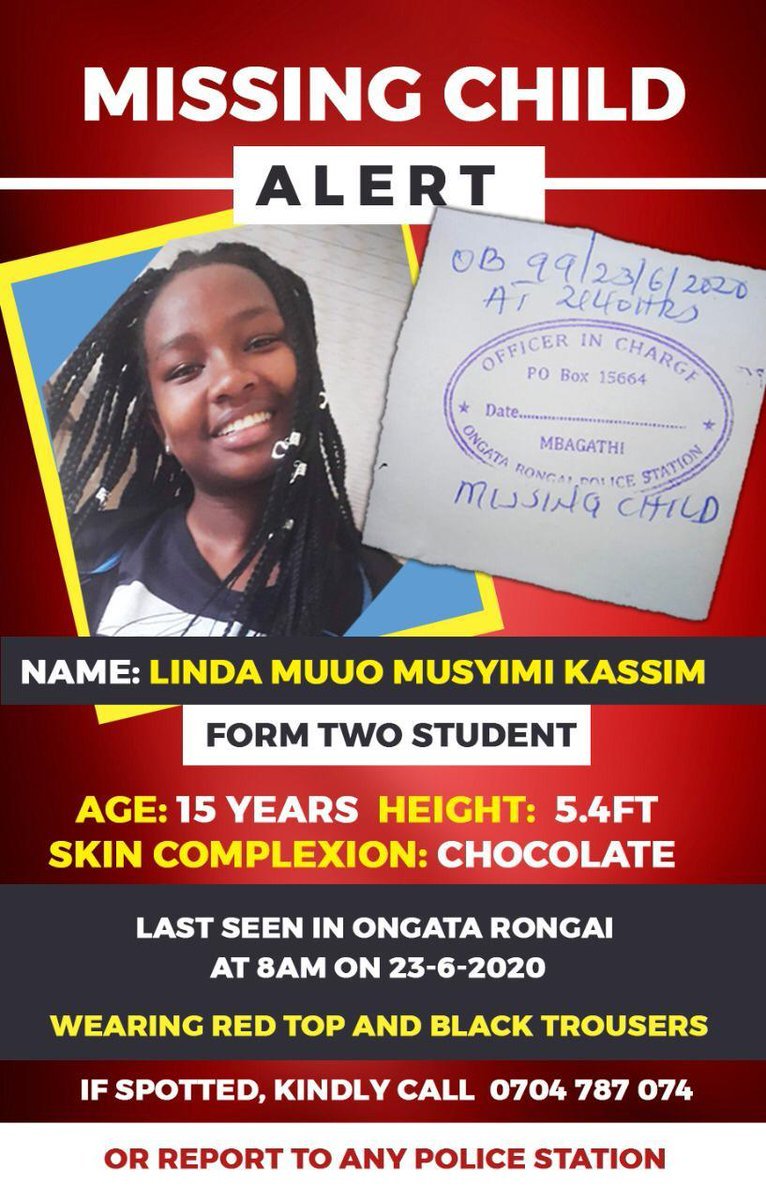 MISSING CHILD
ALERT
OB 99/23/6/2020
AT 2140HRS
OFFICER IN CHARGE
PO Box 15664
Date
MBAGATHI
ONGATA RONGAI POLICE STATION
MISSING CHILD
NAME: LINDA MUUO MUSYIMI KASSIM
FORM TWO STUDENT
AGE: 15 YEARS HEIGHT: 5.4FT
SKIN COMPLEXION: CHOCOLATE
LAST SEEN IN ONGATA RONGAI
AT 8AM ON 23-6-2020
WEARING RED TOP AND BLACK TROUSERS
IF SPOTTED, KINDLY CALL 0704 787 074
OR REPORT TO ANY POLICE STATION